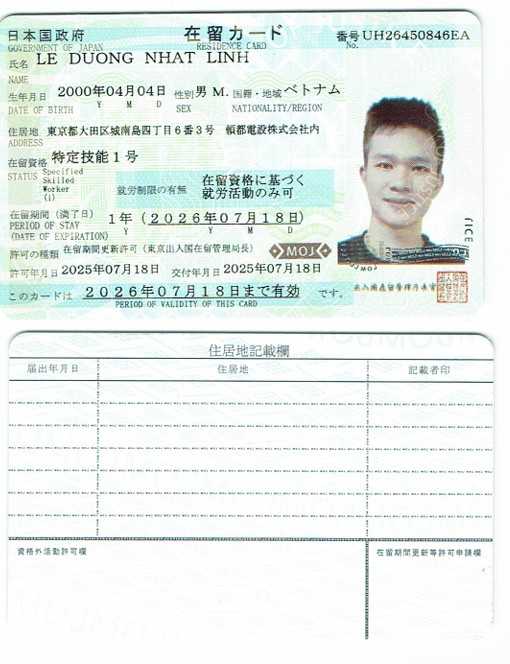 日本国政府 在留カード 番号 UH26450846EA
GOVERNMENT OF JAPAN RESIDENCE CARD No.
氏名 LE DUONG NHAT LINH
NAME
生年月日 2000年04年04日 性別 男 M. 国籍・地域 ベトナム
DATE OF BIRTH Y M D SEX NATIONALITY/REGION
住居地 東京都大田区城南島四丁目6番3号 頓都電設株式会社内
ADDRESS
在留資格 特定技能1号
STATUS Specified
Skilled
Worker
(i)
就労制限の有無 在留資格に基づく
就労活動のみ可
在留期間(満了日) 1年(2026年07月18日)
PERIOD OF STAY Y M D
(DATE OF EXPIRATION)
許可の種類 在留期間更新許可(東京出入国在留管理局長)
MOJ
許可年月日 2025年07月18日 交付年月日 2025年07月18日
このカードは 2026年07月18日まで有効 です。
PERIOD OF VALIDITY OF THIS CARD
住居地記載欄
届出年月日 住居地 記載者印
資格外活動許可欄 在留期間更新等許可申請欄